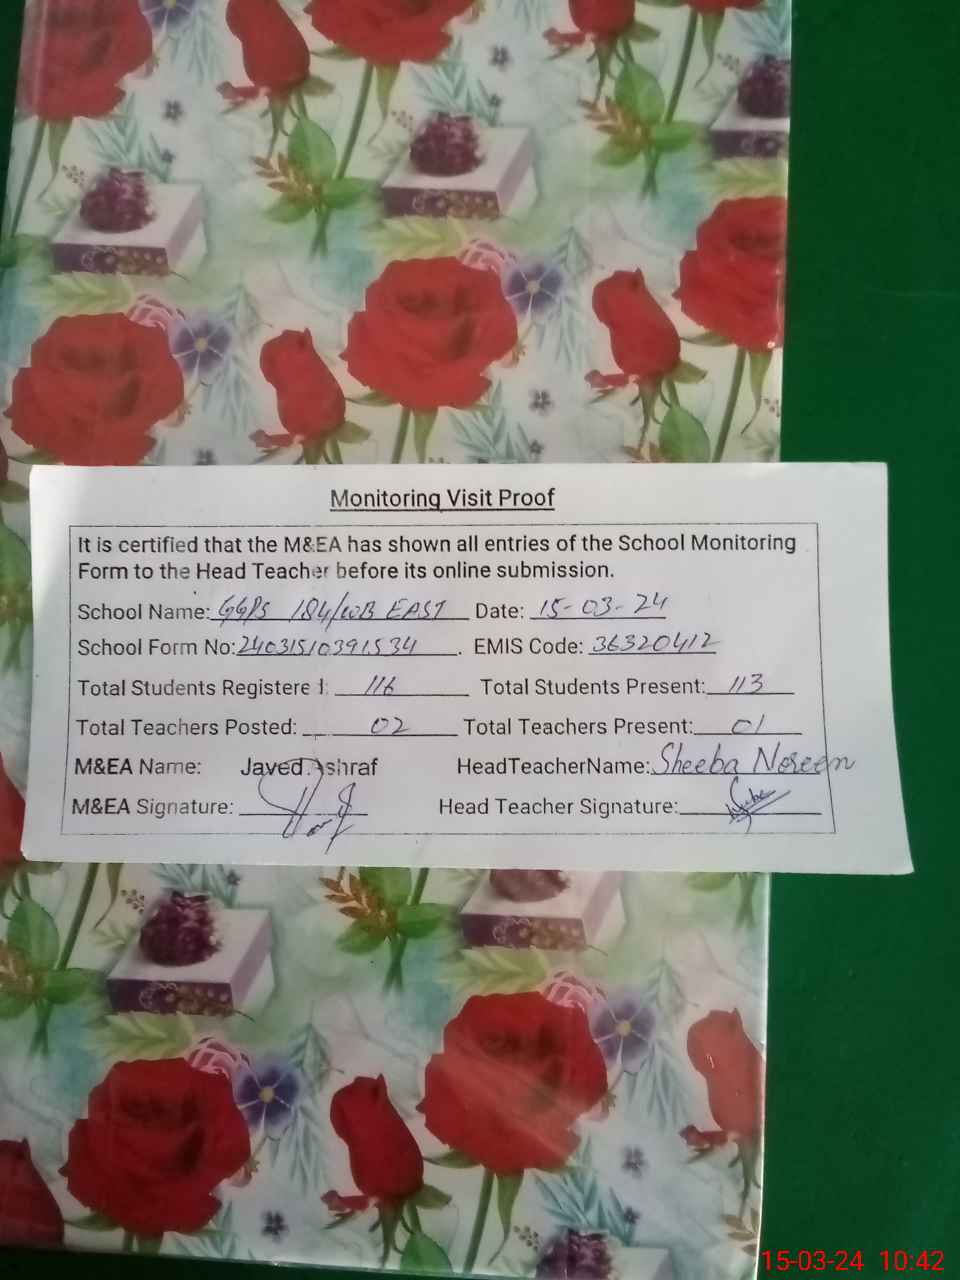 Monitoring Visit Proof
It is certified that the M&EA has shown all entries of the School Monitoring
Form to the Head Teacher before its online submission.
School Name: GGPS 184/WB EAST Date: 15-03-24
School Form No: 24031510391534. EMIS Code: 36320412
Total Students Registered: 116 Total Students Present: 113
Total Teachers Posted: 02 Total Teachers Present: 01
M&EA Name: Javed Ashraf HeadTeacherName: Sheeba Noreen
M&EA Signature: Head Teacher Signature:
15-03-24 10:42